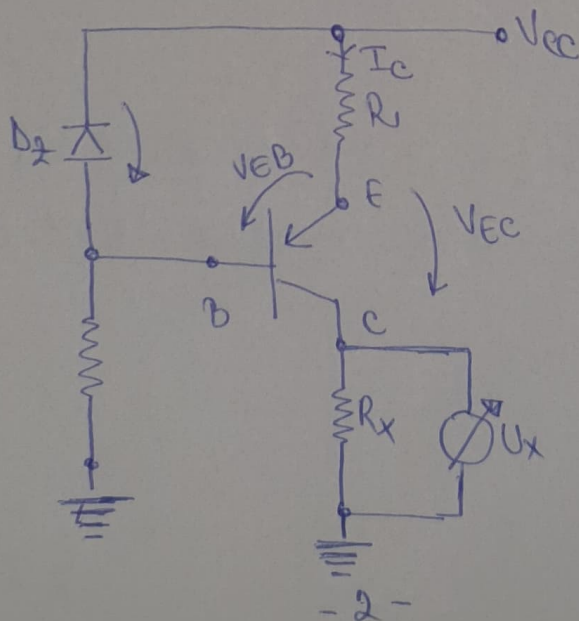 VCC
IC
R
DZ
VEB
E
VEC
B
C
RX
UX
- 2 -